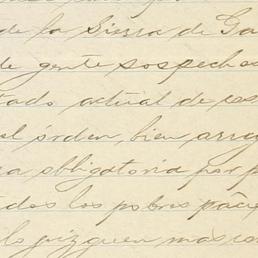 de la Sierra de Ga
de gente sospechos
tado actual de cos
el órden, bien arreg
a obligatoria por p
todos los pobres pací
juzguen mas con